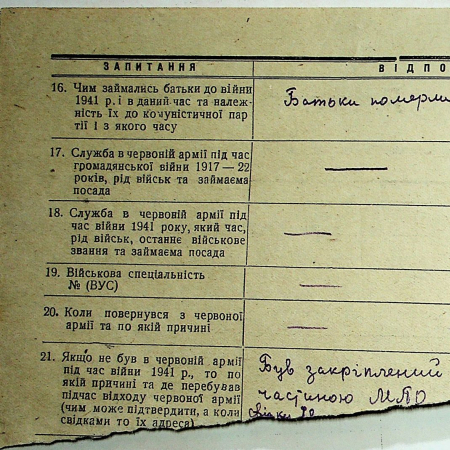 ЗАПИТАННЯ ВІДПО
16. Чим займались батьки до війни
1941 р. і в даний час та належ-
ність їх до комуністичної пар
тії і з якого часу
Батьки померли
17. Служба в червоній армії під час
громадянської війни 1917—22
років, рід військ та займаєма
посада
18. Служба в червоній армії під
час війни 1941 року, який час,
рід військ, останнє військове
звання та займаєма посада
19. Військова спеціальність
№ (ВУС)
20. Коли повернувся з червоної
армії та по якій причині
21. Якщо не був в червоній армії
під час війни 1941 р., то по
якій причині та де перебував
підчас відходу червоної армії
(чим може підтвердити, а коли
свідками то їх адреса)
Був закріплений
частиною